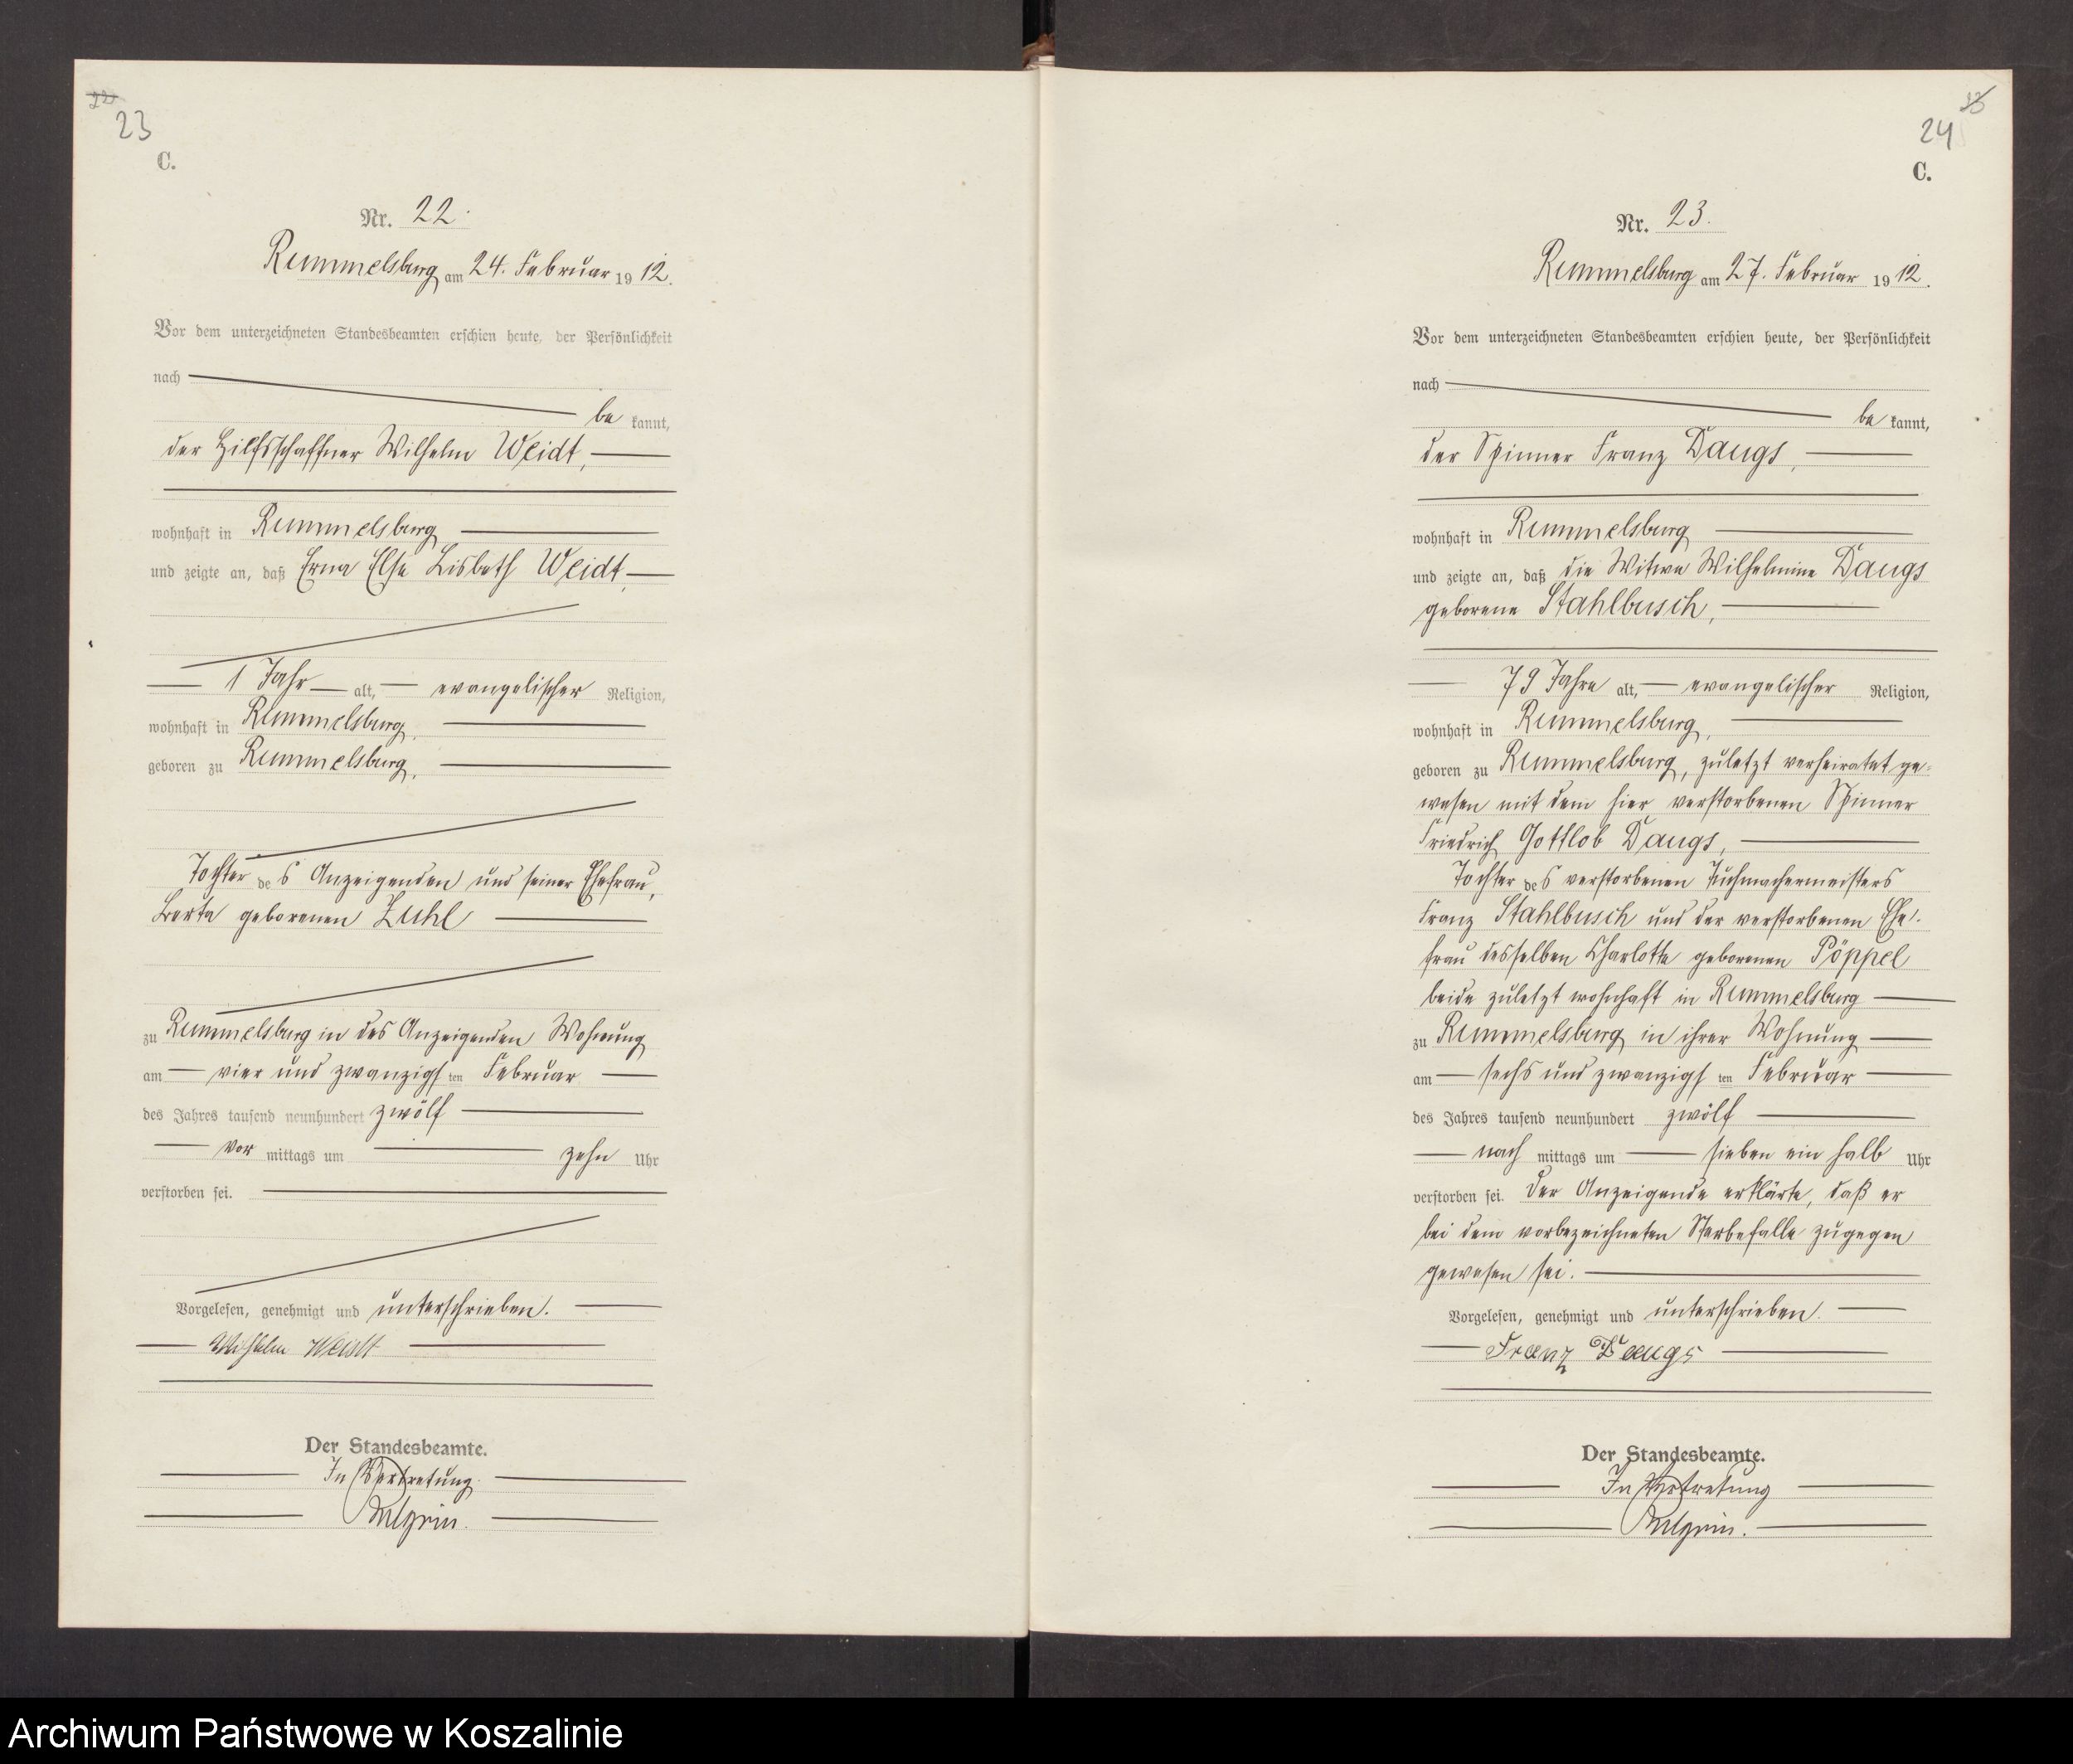 22
23
C.
Nr. 22.
Rummelsburg am 24. Februar 1912.
Vor dem unterzeichneten Standesbeamten erschien heute, der Persönlichkeit
nach
be kannt,
der Hilfsschaffner Wilhelm Weidt,
wohnhaft in Rummelsburg
und zeigte an, daß Erna Else Lisbeth Weidt,
1 Jahr alt, evangelischer Religion,
wohnhaft in Rummelsburg,
geboren zu Rummelsburg,
Tochter des Anzeigenden und seiner Ehefrau,
Berta geborenen Zuhl
zu Rummelsburg in des Anzeigenden Wohnung
am vier und zwanzigsten Februar
des Jahres tausend neunhundert zwölf
vor mittags um zehn Uhr
verstorben sei.
Vorgelesen, genehmigt und unterschrieben.
Wilhelm Weidt
Der Standesbeamte.
In Vertretung.
23
24
C.
Nr. 23.
Rummelsburg am 27. Februar 1912.
Vor dem unterzeichneten Standesbeamten erschien heute, der Persönlichkeit
nach
be kannt,
der Spinner Franz Daugs,
wohnhaft in Rummelsburg
und zeigte an, daß die Witwe Wilhelmine Daugs
geborene Stahlbusch,
79 Jahre alt, evangelischer Religion,
wohnhaft in Rummelsburg,
geboren zu Rummelsburg, zuletzt verheiratet ge-
wesen mit dem hier verstorbenen Spinner
Friedrich Gottlob Daugs,
Tochter des verstorbenen Tuchmachermeisters
Franz Stahlbusch und der verstorbenen Ehe-
frau desselben Charlotte geborenen Pöppel
beide zuletzt wohnhaft in Rummelsburg
zu Rummelsburg in ihrer Wohnung
am sechs und zwanzigsten Februar
des Jahres tausend neunhundert zwölf
nach mittags um sieben ein halb Uhr
verstorben sei. Der Anzeigende erklärte, daß er
bei dem vorbezeichneten Sterbefalle zugegen
gewesen sei.
Vorgelesen, genehmigt und unterschrieben.
Franz Daugs
Der Standesbeamte.
In Vertretung
Archiwum Państwowe w Koszalinie